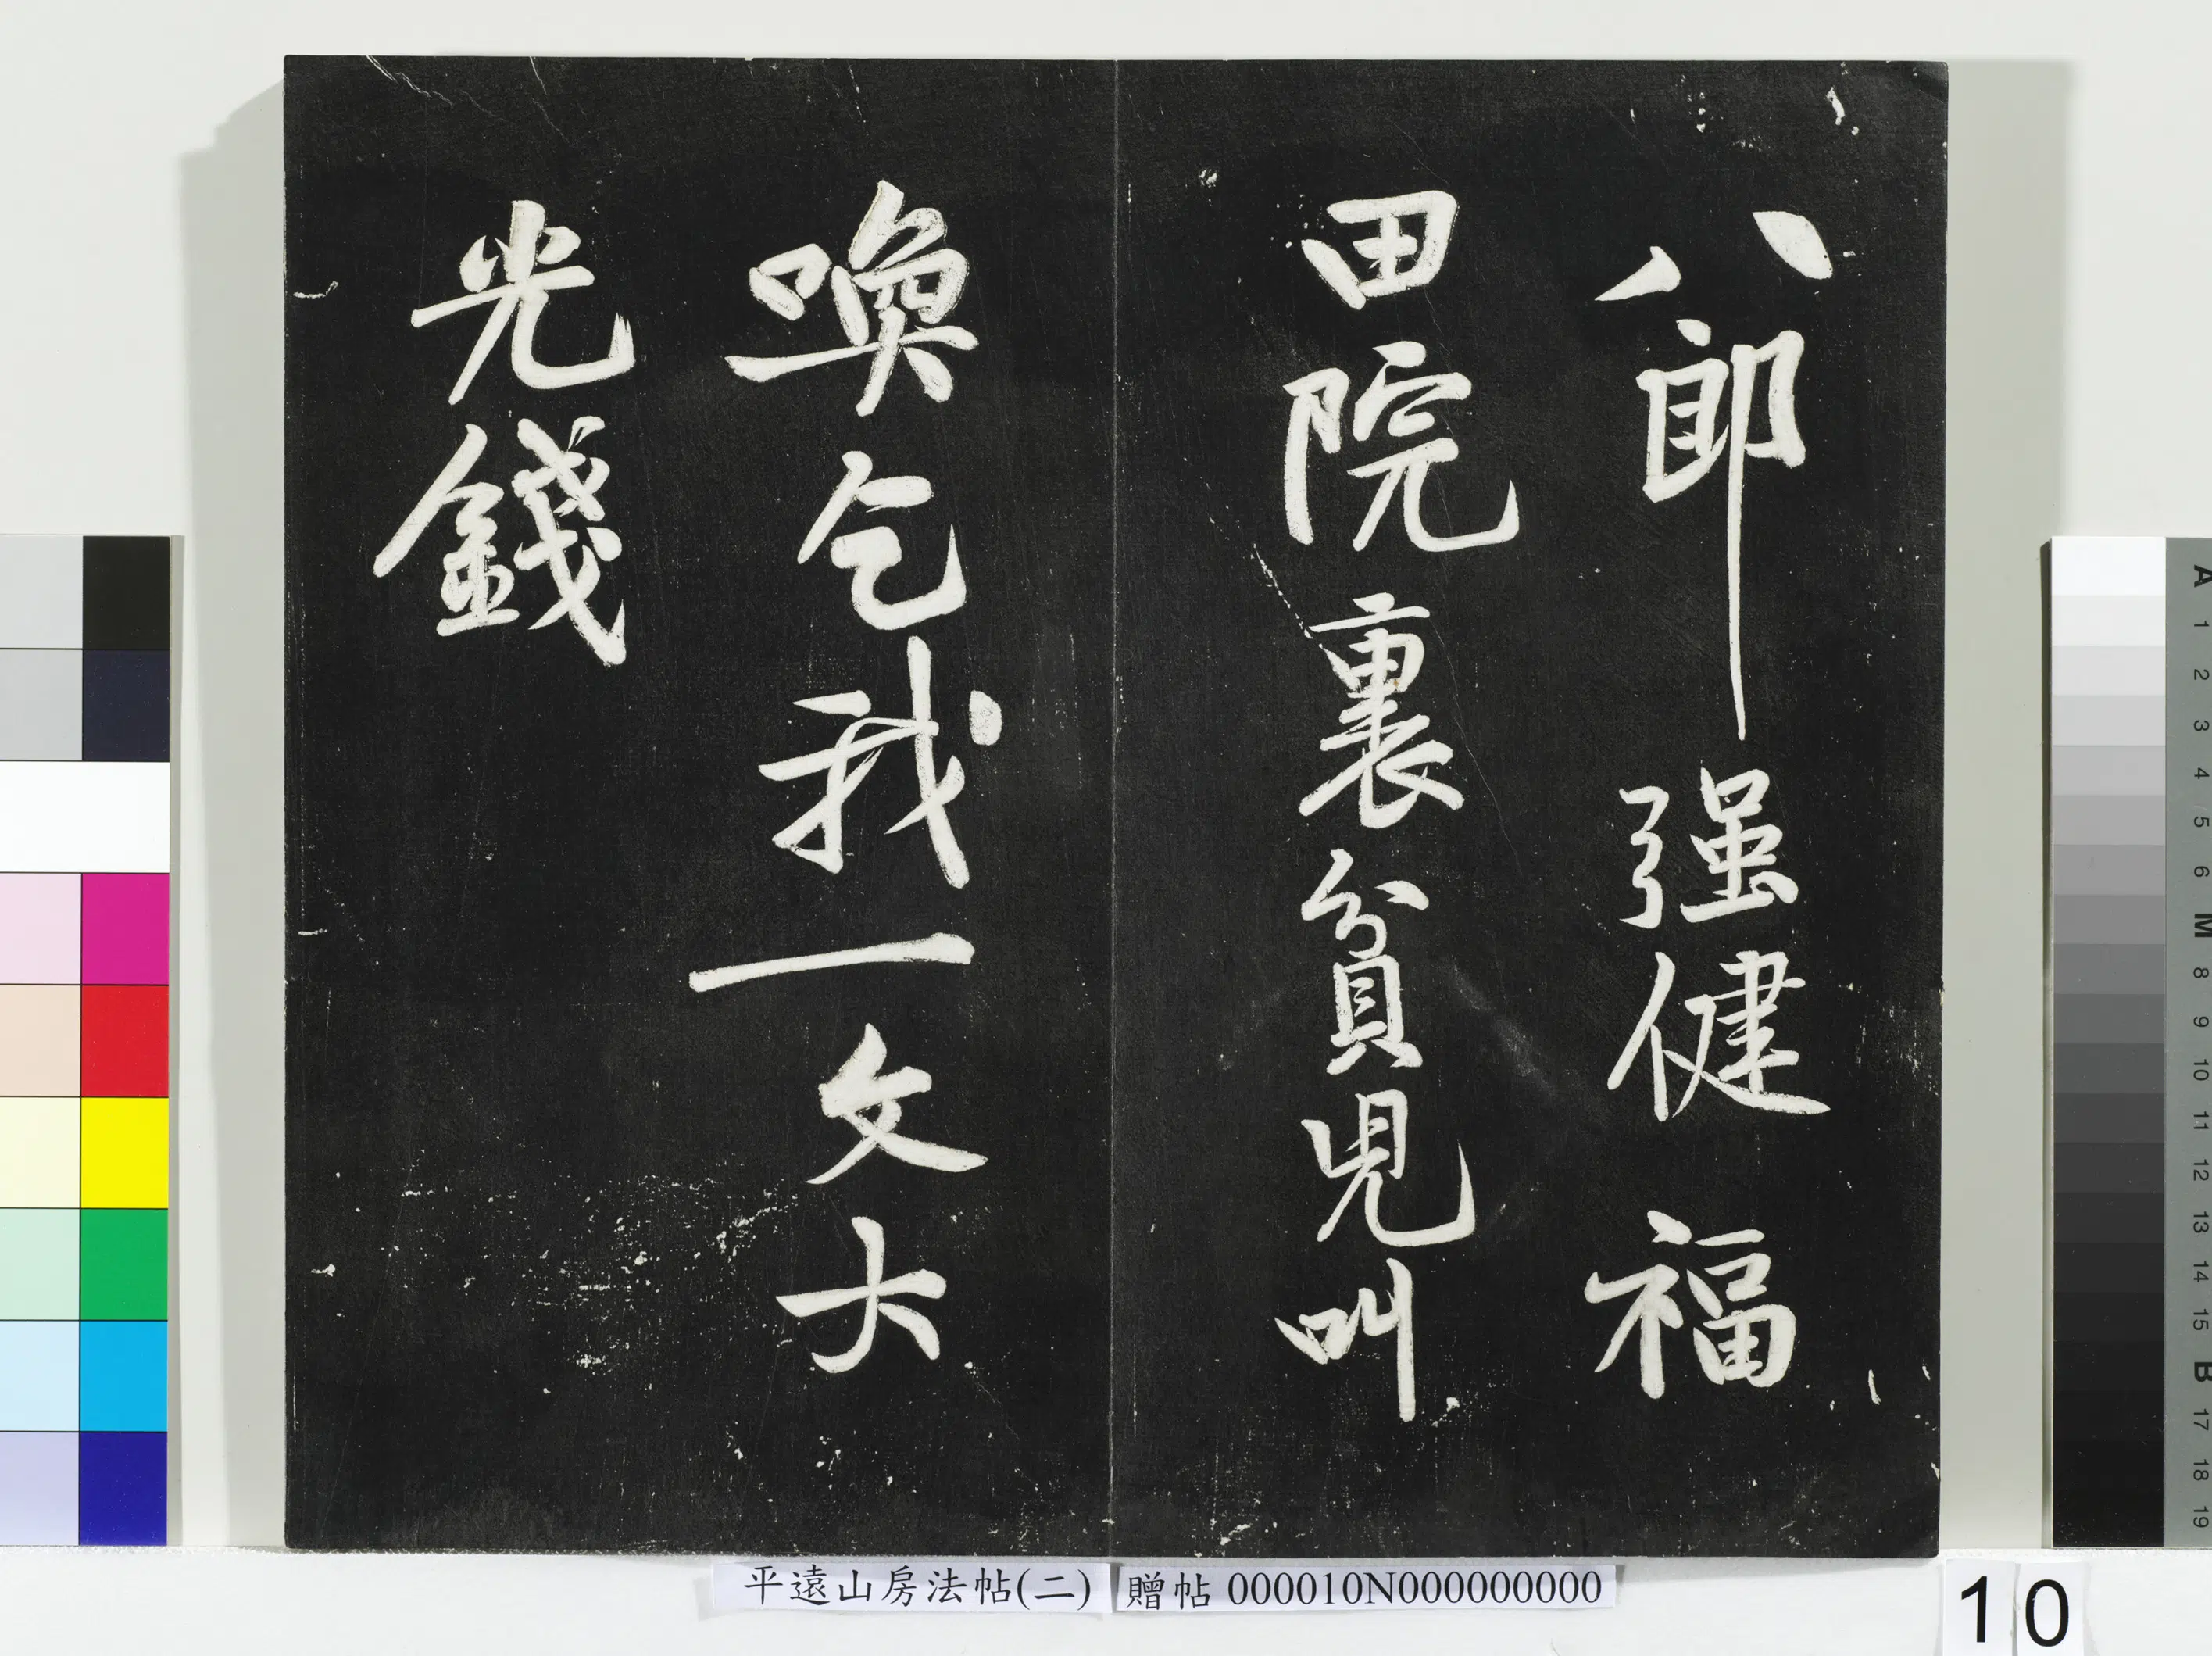 八郎强健福
田院裏貧兒叫
喚乞我一文大
光錢
平遠山房法帖(二) 贈帖 000010N000000000
10
A 1 2 3 4 5 6 M 8 9 10 11 12 13 14 15 B 17 18 19